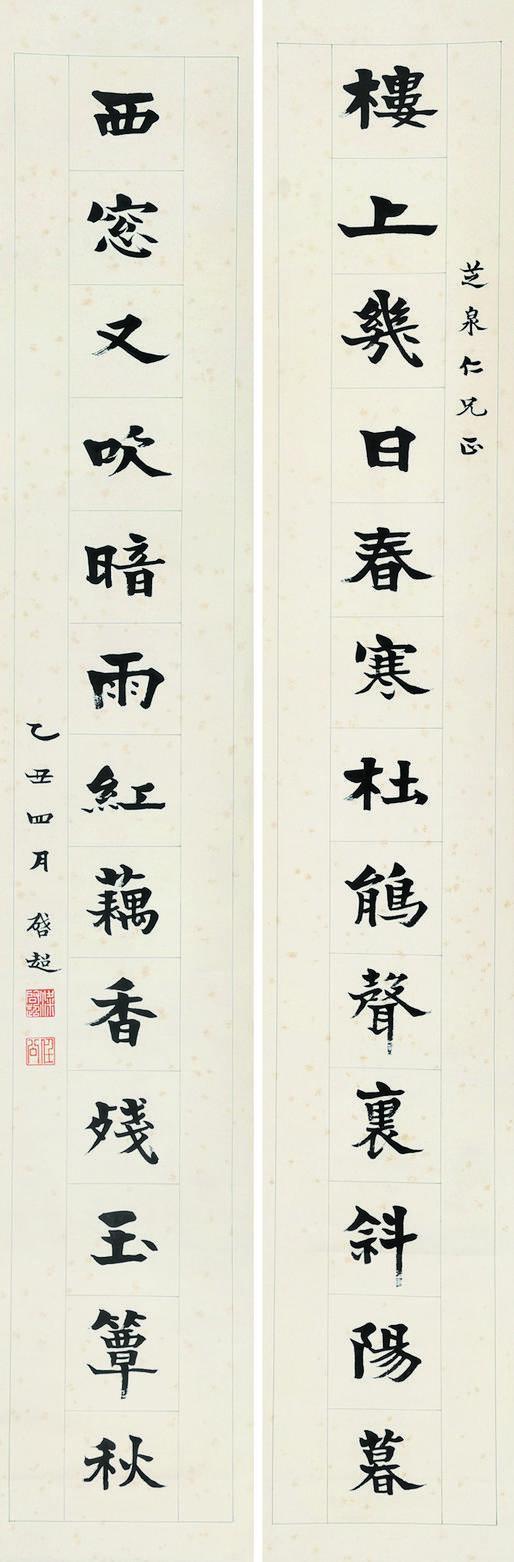 芝泉仁兄正
樓上幾日春寒杜鵑聲裏斜陽暮
西窓又吹暗雨紅藕香殘玉簟秋
乙丑四月 啓超
梁啓超
任公